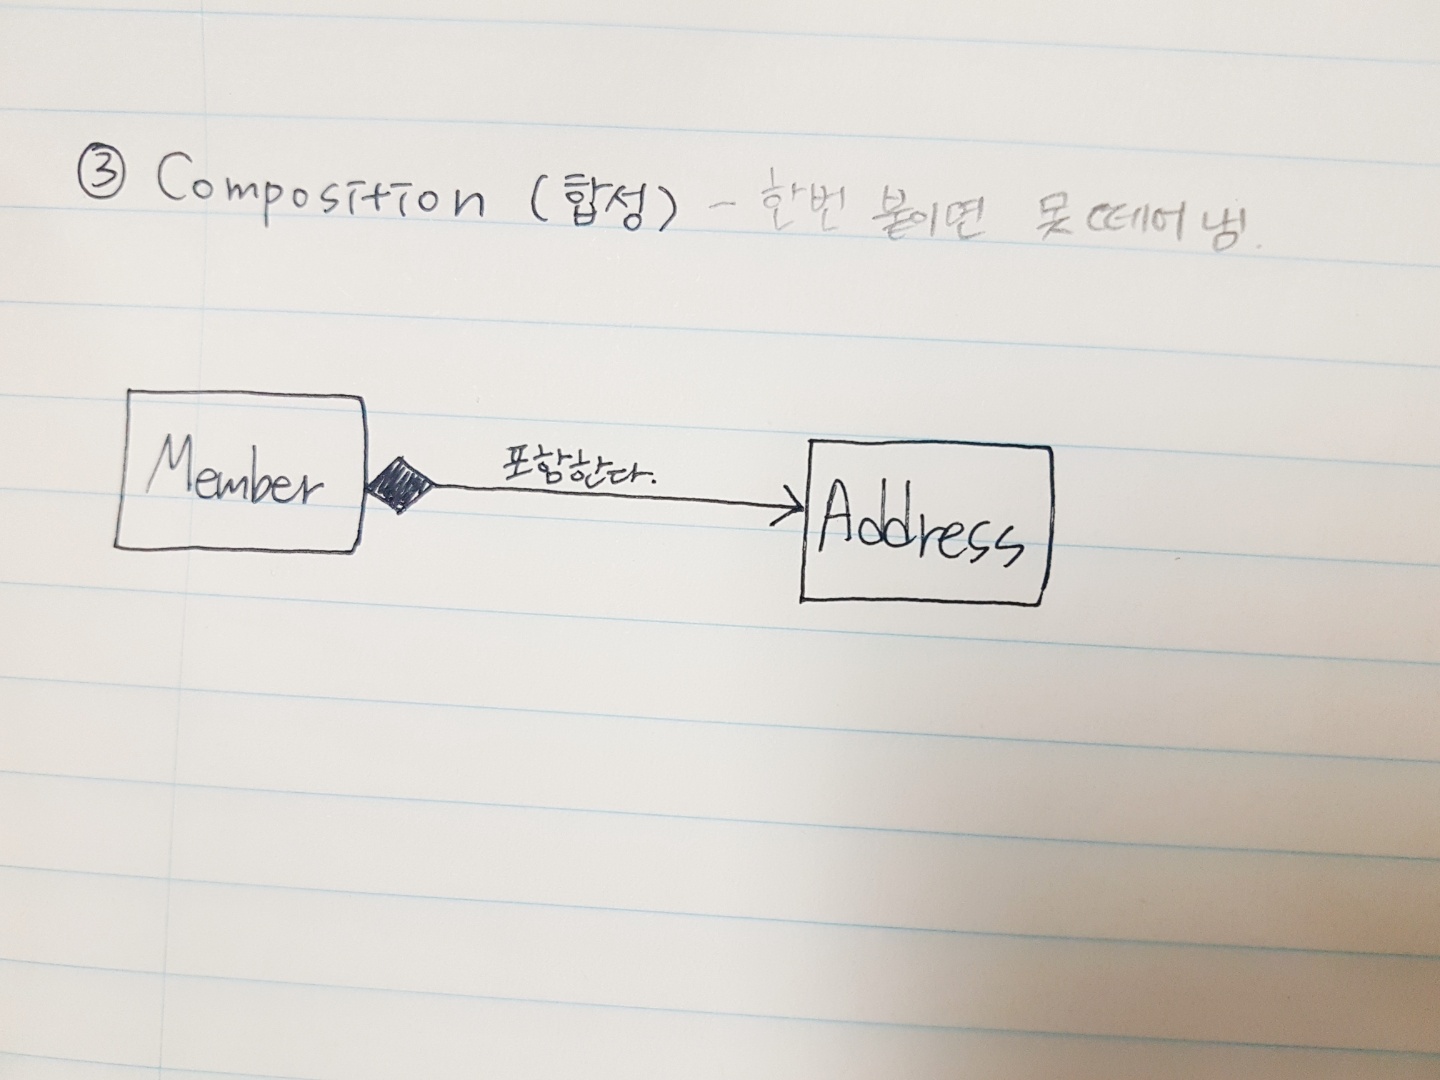 ③ Composition (합성) - 한번 붙이면 못 떼어냄.
포함한다.
Member
Address